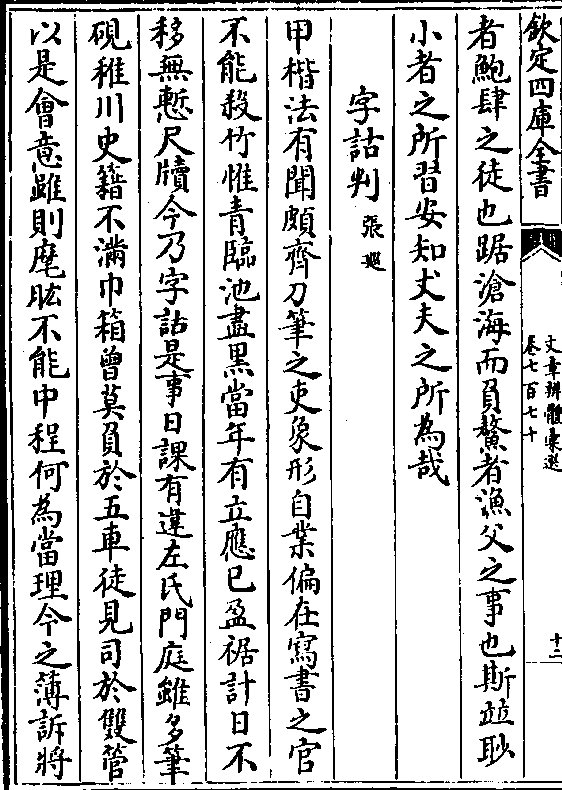 欽定四庫全書
文章辨體彚選
卷七百七十
十二
者鮑肆之徒也踞滄海而負鰲者漁父之事也斯並眇
小者之所習安知丈夫之所為哉
字詁判
張巡
甲楷法有聞頗齊刀筆之吏象形自業偏在寫書之官
不能殺竹惟青臨池盡黒當年有立應已盈裾計日不
移無慙尺牘今乃字詁是事日課有違左氏門庭雖多筆
硯稚川史籍不滿巾箱曾莫負於五車徒見司於雙管
以是會意雖則麾肱不能中程何為當理今之薄訴將